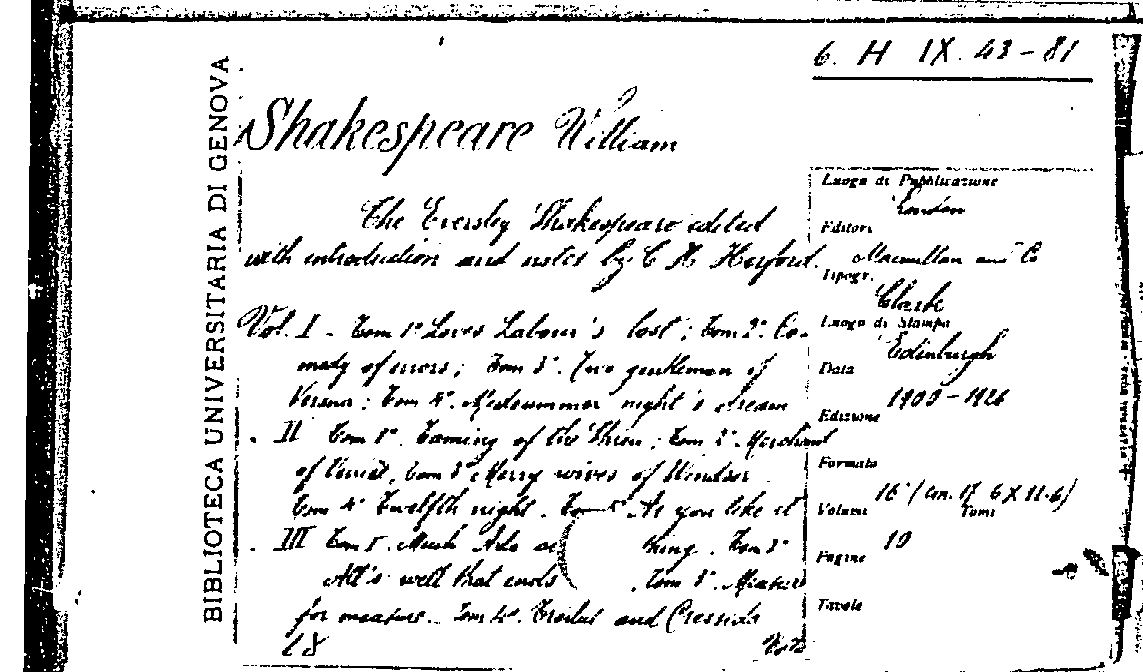 6. H IX. 43-81
BIBLIOTECA UNIVERSITARIA DI GENOVA
Shakespeare William
The Eversley Shakespeare edited
with introduction and notes by C H Herford.
Vol. I - Tom 1° Loves Labour's lost; Tom 2° Co-
medy of errors; Tom 3°. Two gentleman of
Verona; Tom 4°. Midsummer night's dream
. II Tom 1°. Taming of the Shrew; Tom 2°. Merchant
of Venice, Tom 3° Merry wives of Windsor
Tom 4° Twelfth night. Tom 5° As you like it
. III Tom 1. Much Ado thing. Tom 2°
All's well that ends Tom 3°. Measure
for measure. Tom 4°. Troilus and Cressida
Luogo di Pubblicazione
London
Editori
Macmillan and Co
Tipogr.
Clark
Luogo di Stampa
Edinburgh
Data
1900-1926
Edizione
Formato
16° (cm. 17.6X11.6)
Volumi Tomi
10
Pagine
Tavole